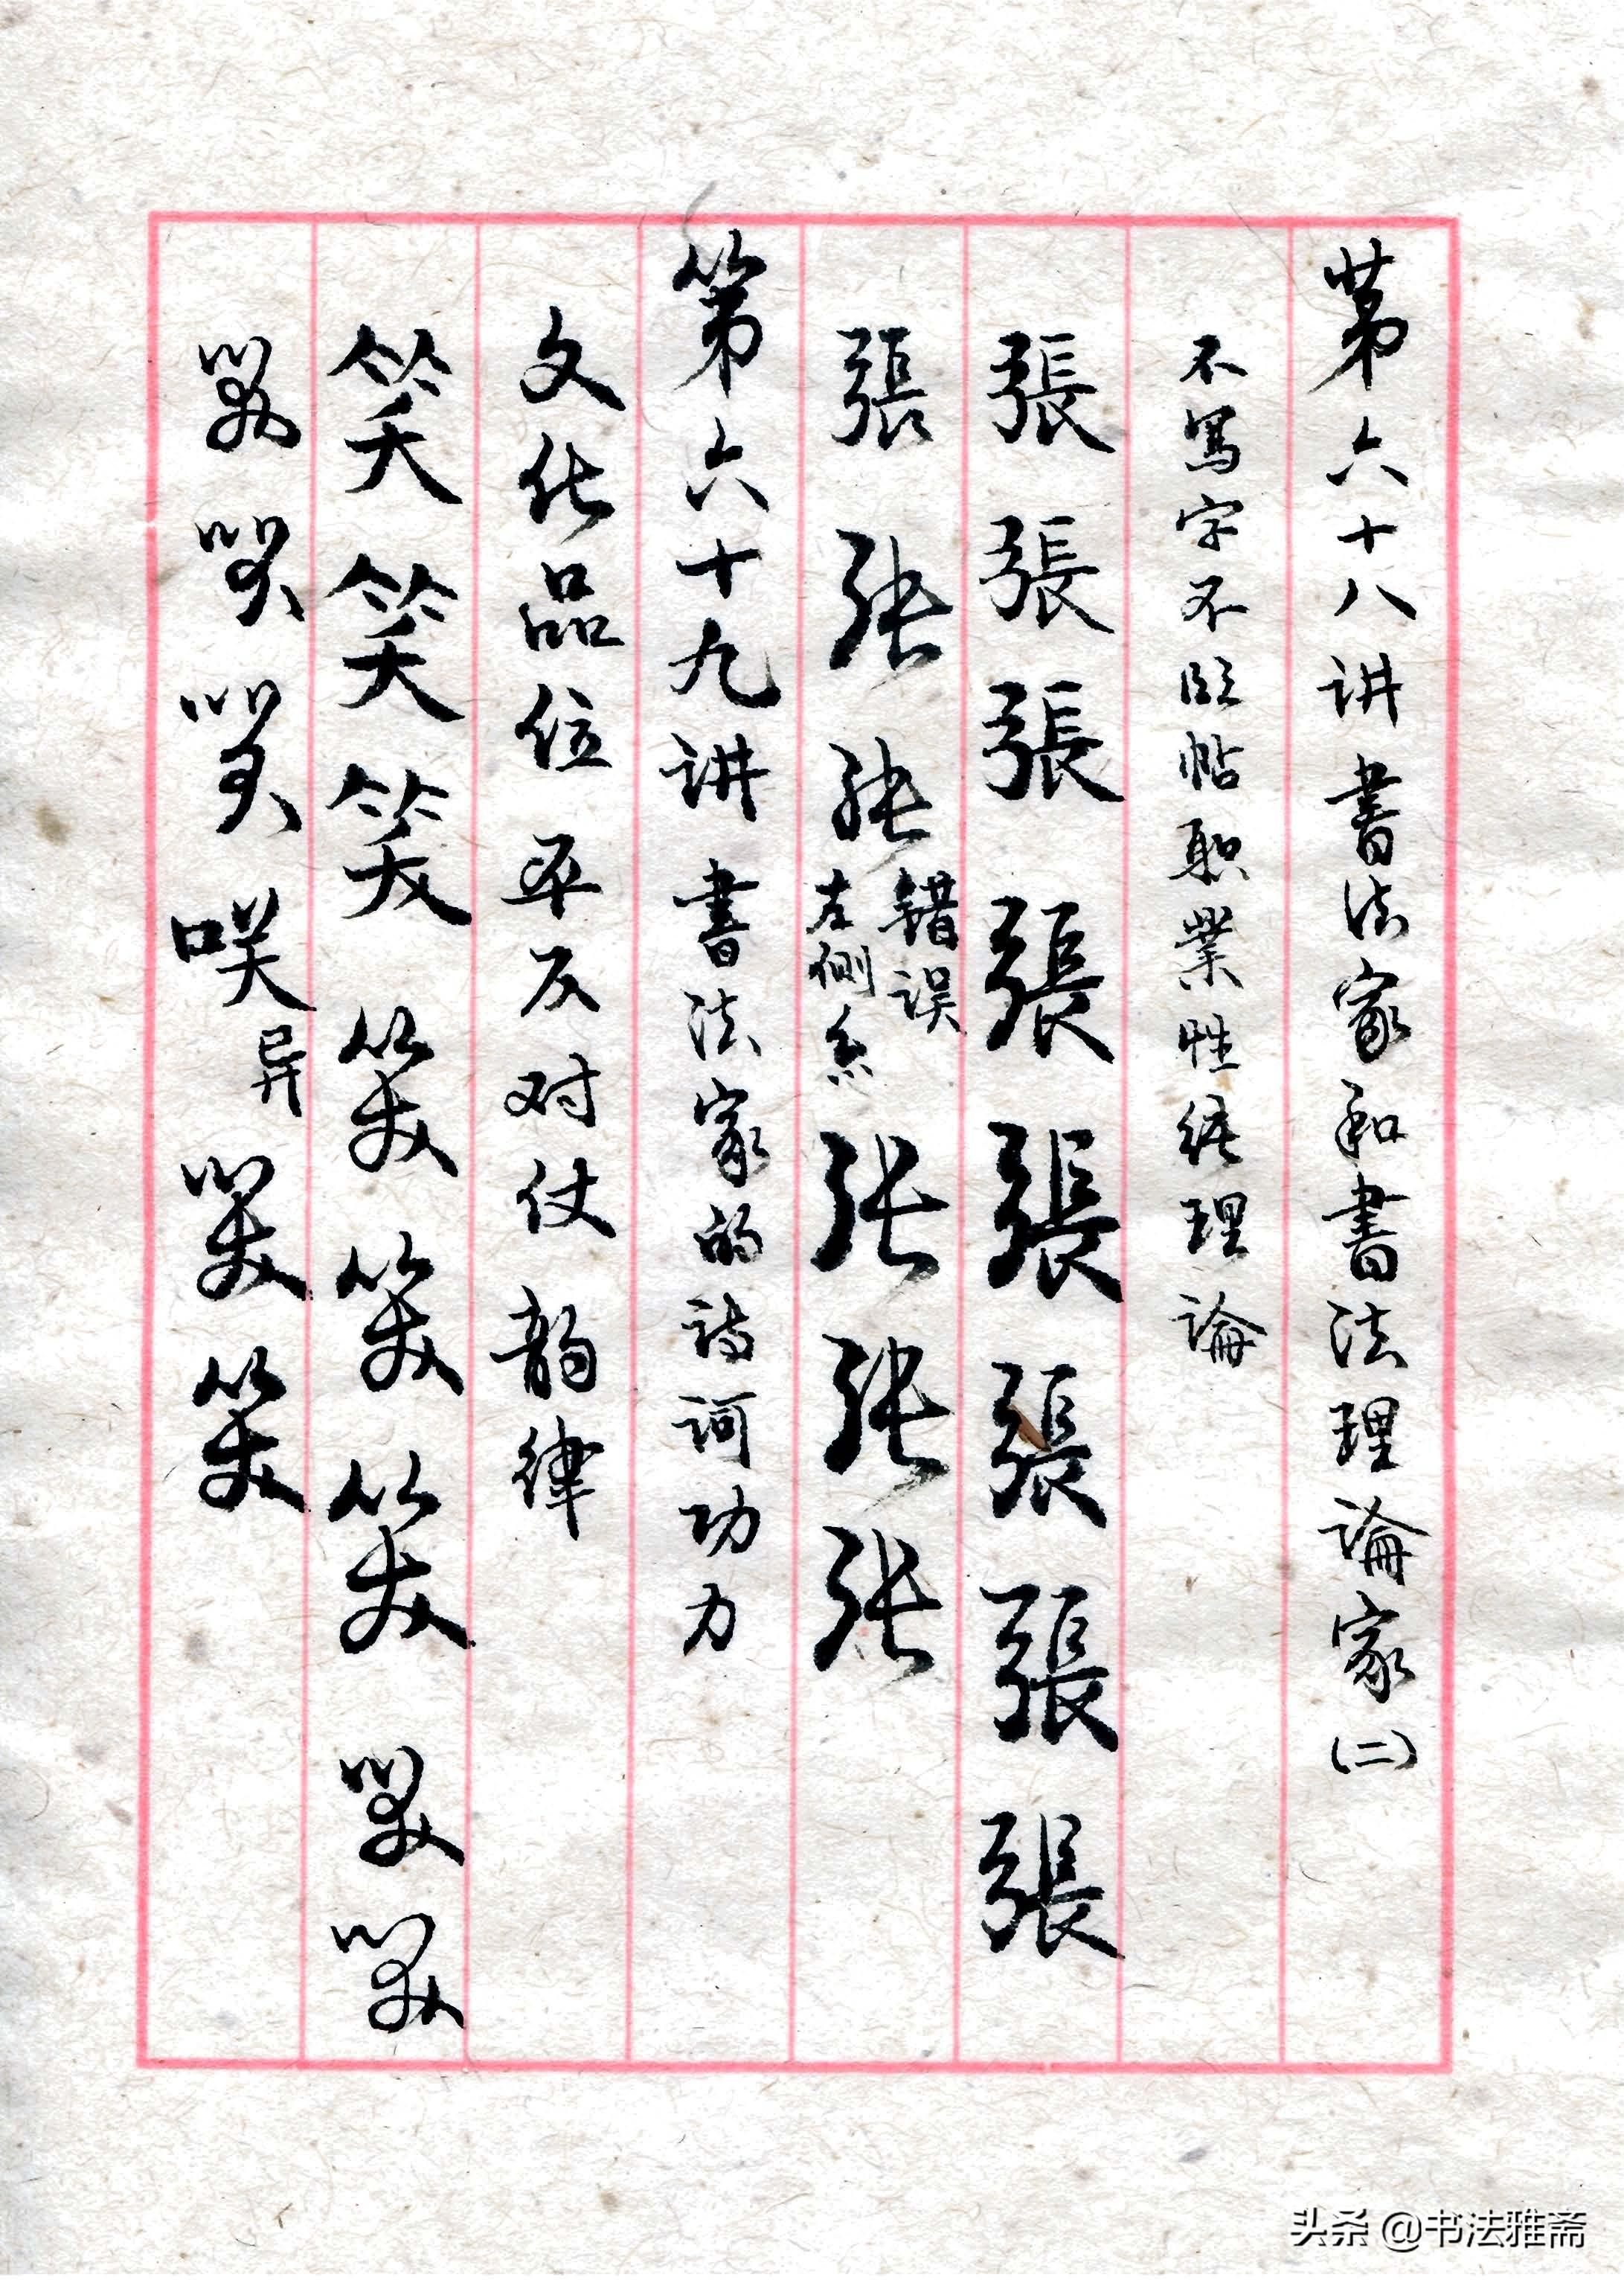 第六十八讲 書法家和書法理論家(二)
不写字不临帖职業性继理論
張張張張張張張張
張张张 错误 左侧糸 张张张
第六十九讲 書法家的诗词功力
文化品位 平仄对仗 韵律
笑笑笑笑笑笑笑笑
笑笑笑咲异笑笑
头条 @书法雅斋